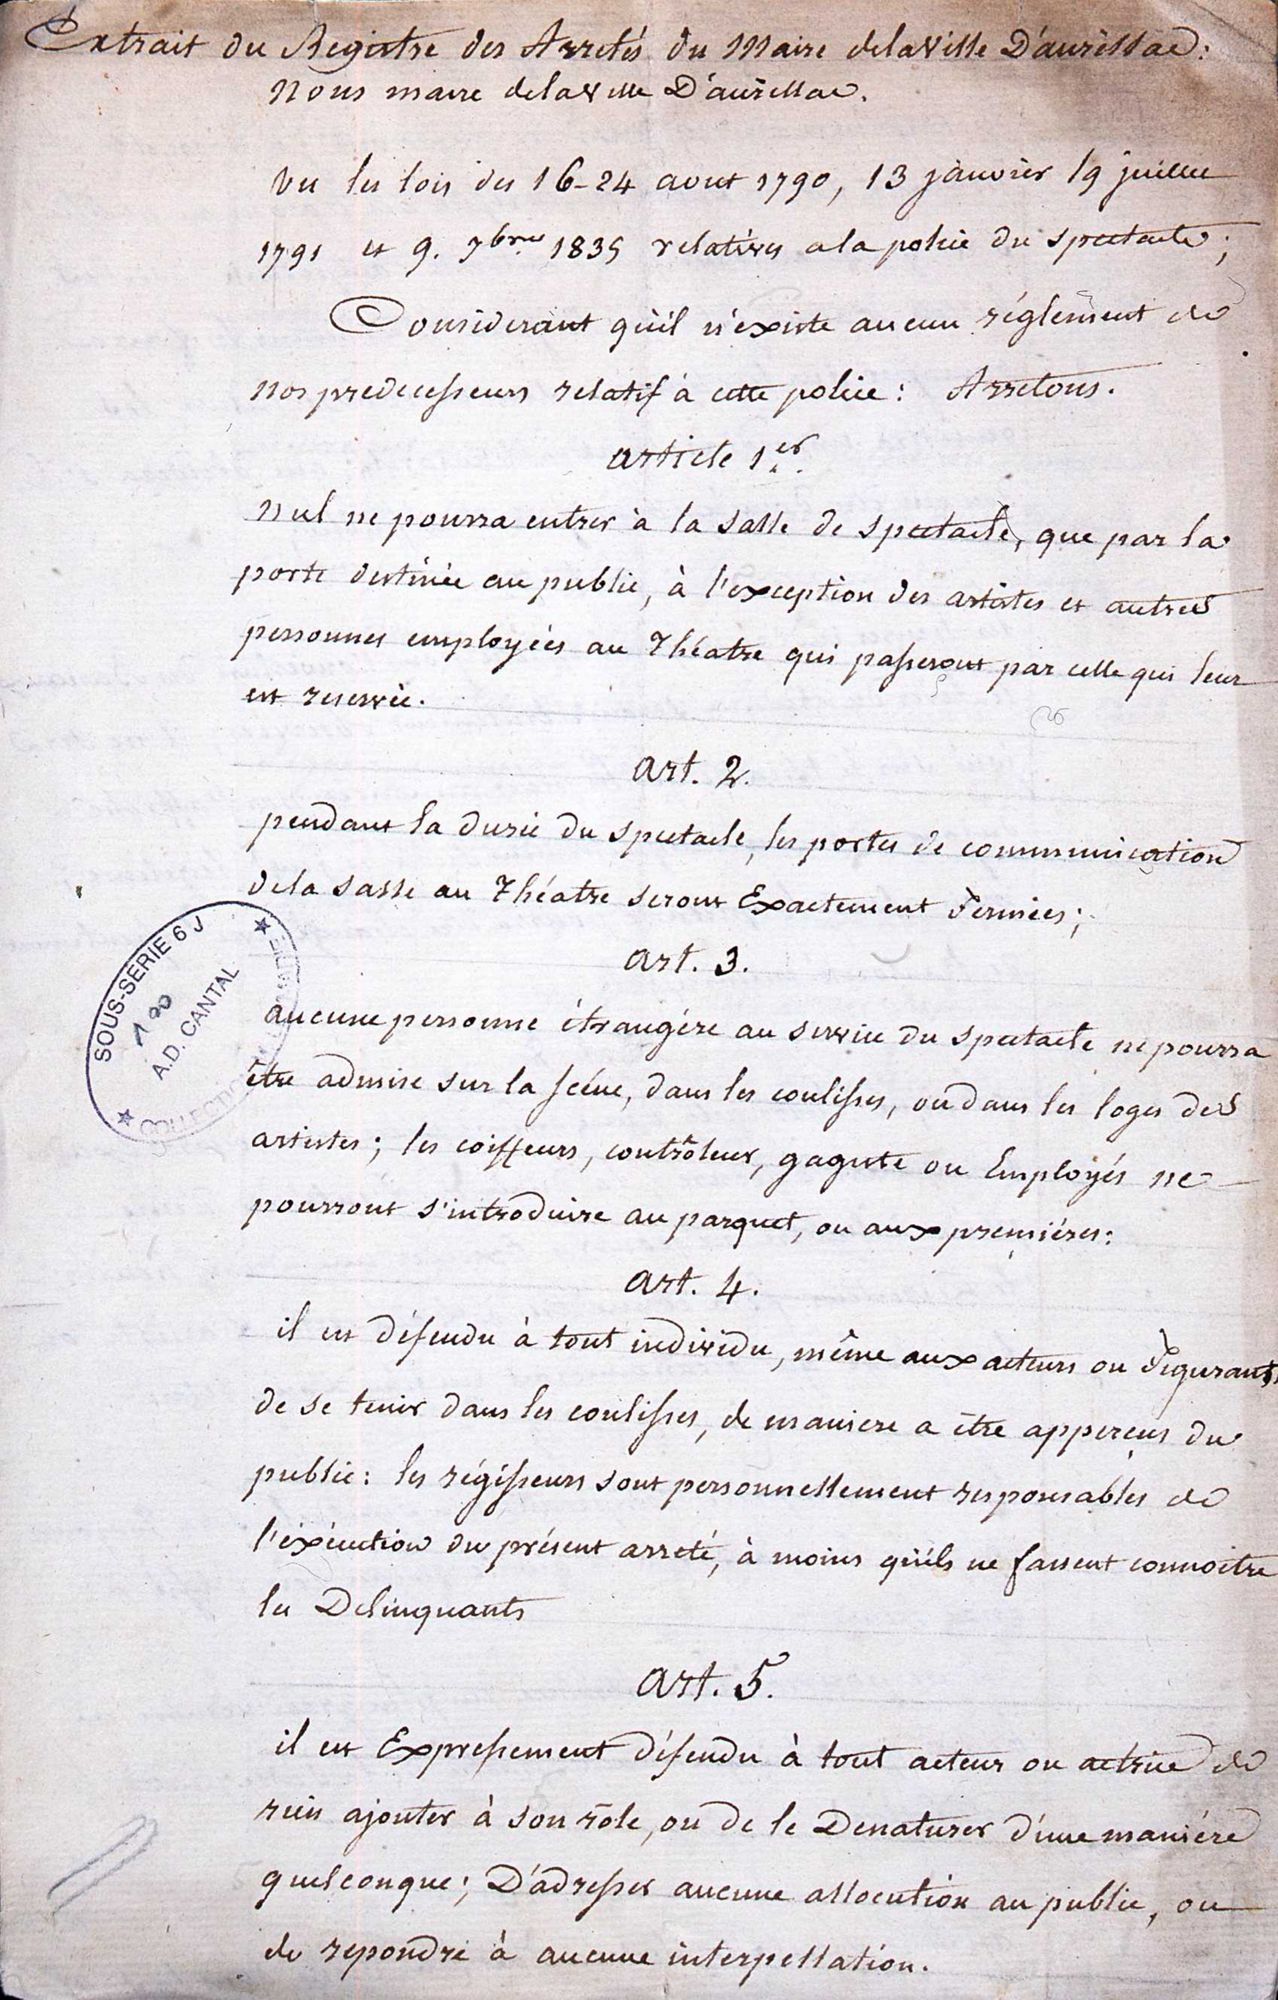 Extrait du Registre des Arretés du Maire dela Ville D'aurillac:
Nous maire dela ville D'aurillac.
Vu les lois des 16-24 aout 1790, 13 janvier 19 juillet
1791 et 9. 7bre 1835 relatives a la police du spectacle;
Considerant qu'il n'existe aucun réglement de
nos predecesseurs relatif à cette police: Arretons.
article 1er.
Nul ne pourra entrer à la salle de spectacle, que par la
porte destinée au public, à l'exception des artistes et autres
personnes employées au Théatre qui passeront par celle qui leur
est reservée.
art. 2.
pendant la durée du spectacle, les portes de communication
dela salle au Théatre seront Exactement Fermées;
art. 3.
aucune personne étrangére au service du spectacle ne pourra
être admise sur la scéne, dans les coulisses, ou dans les loges des
artistes; les coiffeurs, contrôleur, gagiste ou Employés ne
pourront s'introduire au parquet, ou aux premiéres:
art. 4.
il est défendu à tout individu, même aux acteurs ou Figurants
de se tenir dans les coulisses, de maniere a être apperçus du
public: les régisseurs sont personnellement responsables de
l'éxécution du présent arreté, à moins qu'ils ne fassent connoitre
les Delinquants
art. 5.
il est Expressement défendu à tout acteur ou actrice de
rien ajouter à son rôle, ou de le Denaturer d'une maniére
quelconque; D'adresser aucune allocution au public, ou
de repondre à aucune interpellation.
SOUS-SÉRIE 6 J
100
A.D. CANTAL
COLLECTION